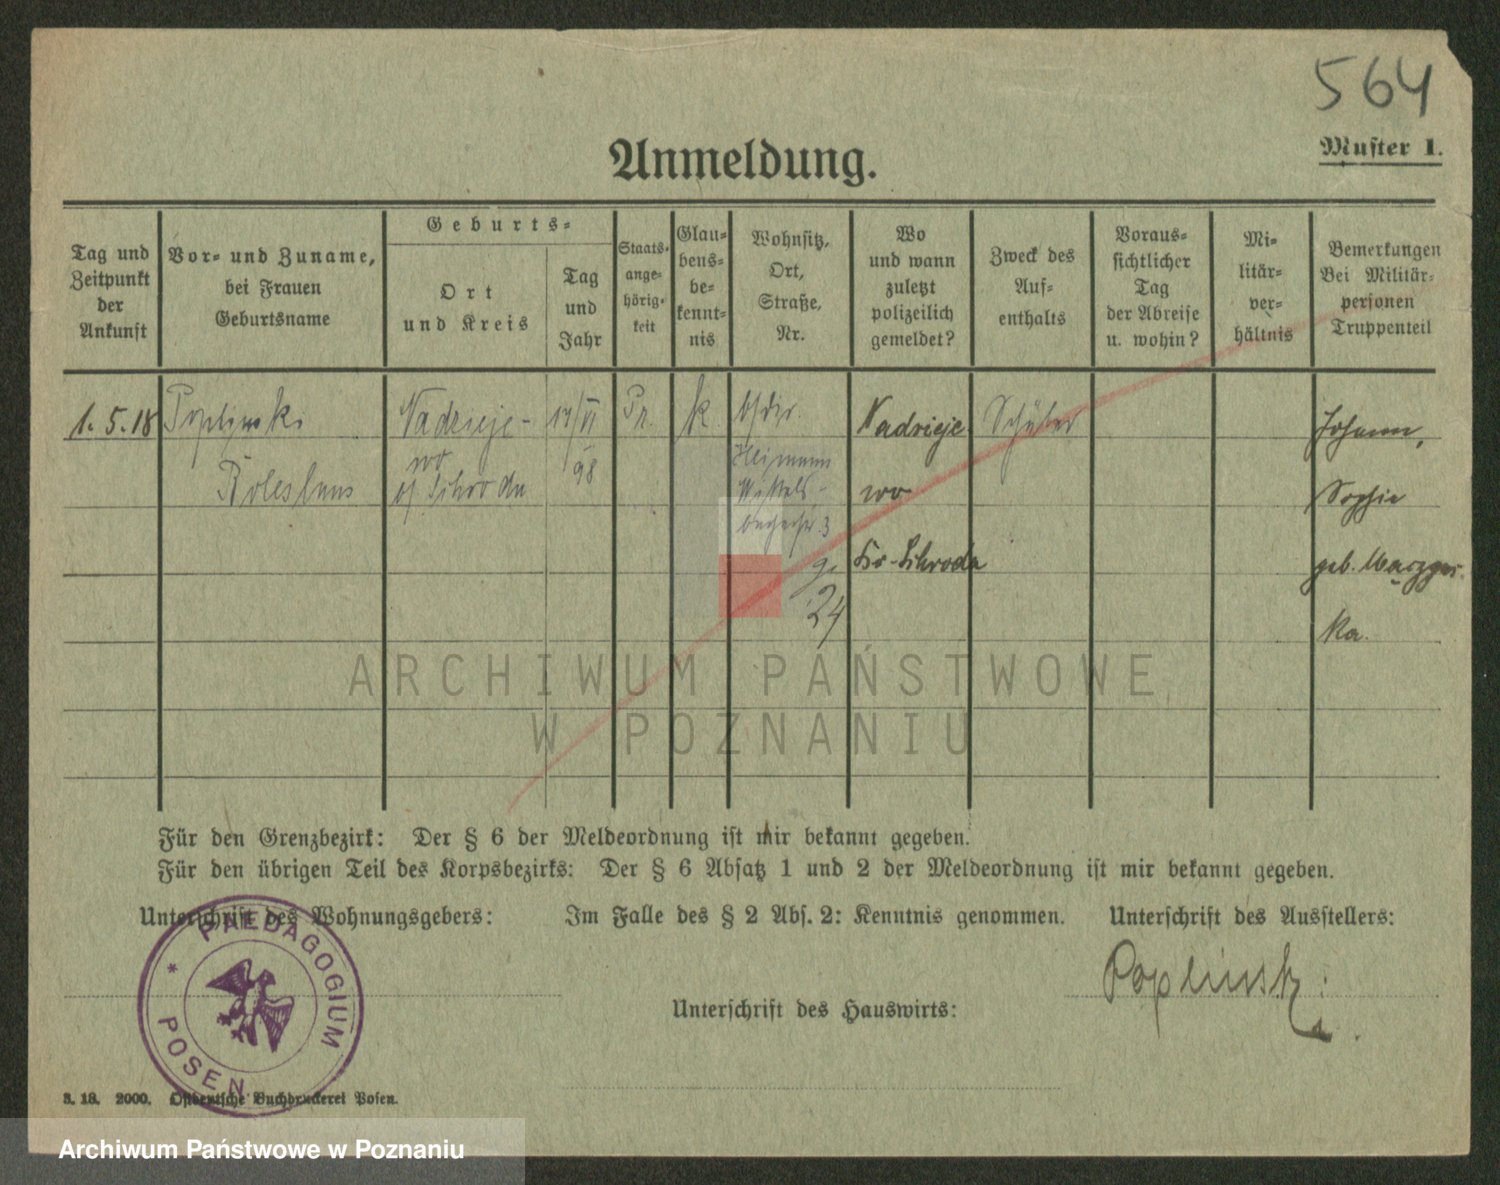 564
Muster 1.
Anmeldung.
Tag und Zeitpunkt der Ankunft
Vor- und Zuname, bei Frauen Geburtsname
Geburts-
Ort und Kreis
Tag und Jahr
Staats- ange- hörig- keit
Glau- bens- be- kennt- nis
Wohnsitz, Ort, Straße, Nr.
Wo und wann zuletzt polizeilich gemeldet?
Zweck des Auf- enthalts
Voraus- sichtlicher Tag der Abreise u. wohin?
Mi- litär- ver- hältnis
Bemerkungen Bei Militär- personen Truppenteil
1.5.18
Poplinski
Boleslaus
Nadzieje-
wo
Schroda
17/VI
98
Pr.
k
Nadzieje
wo
Kr. Schroda
Schüler
Johann,
Sophie
geb.
ka.
24
ARCHIWUM PAŃSTWOWE
W POZNANIU
Für den Grenzbezirk: Der § 6 der Meldeordnung ist mir bekannt gegeben.
Für den übrigen Teil des Korpsbezirks: Der § 6 Absatz 1 und 2 der Meldeordnung ist mir bekannt gegeben.
Unterschrift des Wohnungsgebers:
Im Falle des § 2 Abs. 2: Kenntnis genommen.
Unterschrift des Ausstellers:
PAEDAGOGIUM
* POSEN
Poplinski
Unterschrift des Hauswirts:
3. 18. 2000. Ostdeutsche Buchdruckerei Posen.
Archiwum Państwowe w Poznaniu